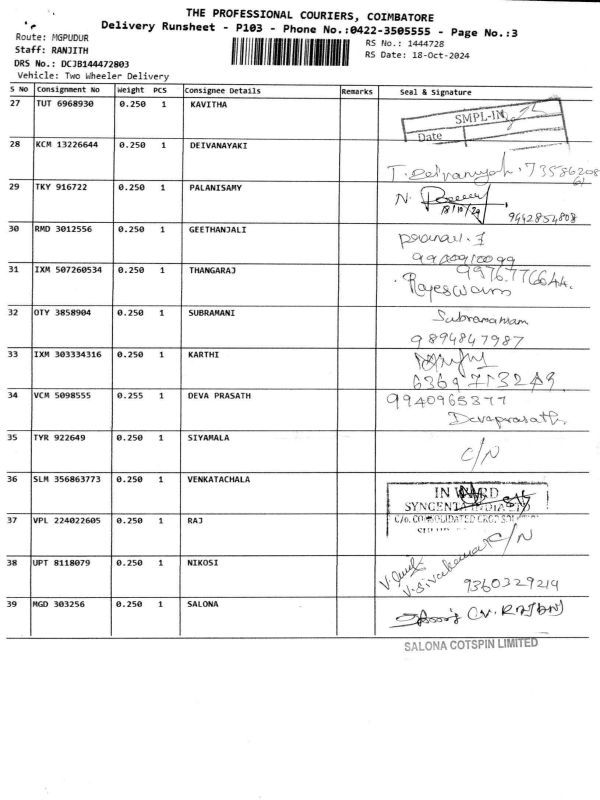 THE PROFESSIONAL COURIERS, COIMBATORE
Delivery Runsheet - P103 - Phone No.:0422-3505555 - Page No.:3
Route: MGPUDUR
RS No.: 1444728
Staff: RANJITH
RS Date: 18-Oct-2024
DRS No.: DCJB144472803
Vehicle: Two Wheeler Delivery
S No Consignment No Weight PCS Consignee Details Remarks Seal & Signature
27 TUT 6968930 0.250 1 KAVITHA
SMPL-IN
Date
28 KCM 13226644 0.250 1 DEIVANAYAKI
T. Deivanayaki. 73586208
61
29 TKY 916722 0.250 1 PALANISAMY
N.
18/10/24
9442854808
30 RMD 3012556 0.250 1 GEETHANJALI
31 IXM 507260534 0.250 1 THANGARAJ
9976776644.
Rajeswari
32 OTY 3858904 0.250 1 SUBRAMANI
Subramaniam
9894847987
33 IXM 303334316 0.250 1 KARTHI
34 VCM 5098555 0.255 1 DEVA PRASATH
9940965377
Devaprasath.
35 TYR 922649 0.250 1 SIYAMALA
C/N
36 SLM 356863773 0.250 1 VENKATACHALA
IN WARD
SYNGENTA INDIA LTD
37 VPL 224022605 0.250 1 RAJ
C/o. CONSOLIDATED
C/N
38 UPT 8118079 0.250 1 NIKOSI
V. Sivakumar
9360329214
39 MGD 303256 0.250 1 SALONA
C.V. RAJAN
SALONA COTSPIN LIMITED